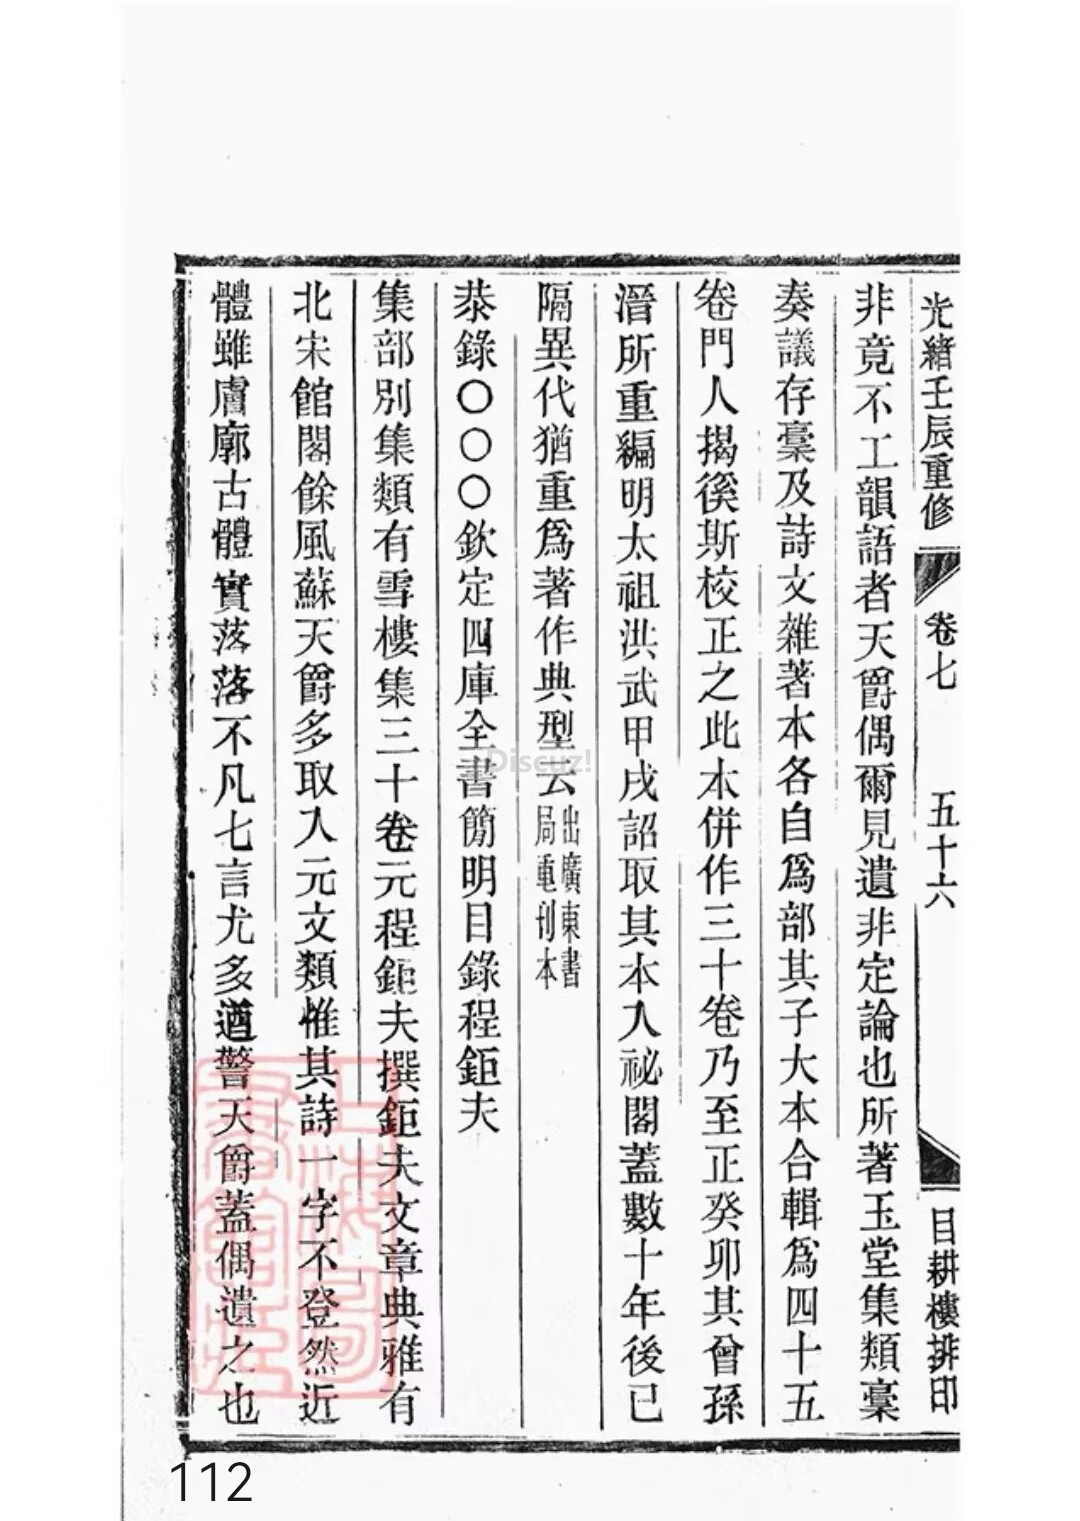 光緒壬辰重修 卷七 五十六 目耕樓排印
非竟不工韻語者天爵偶爾見遺非定論也所著玉堂集類稾
奏議存稾及詩文雜著本各自爲部其子大本合輯爲四十五
卷門人揭徯斯校正之此本併作三十卷乃至正癸卯其曾孫
潛所重編明太祖洪武甲戌詔取其本入祕閣蓋數十年後已
隔異代猶重爲著作典型云出廣東書局重刊本
恭錄〇〇〇欽定四庫全書簡明目錄程鉅夫
集部別集類有雪樓集三十卷元程鉅夫撰鉅夫文章典雅有
北宋館閣餘風蘇天爵多取入元文類惟其詩一字不登然近
體雖膚廓古體實落落不凡七言尤多遒警天爵蓋偶遺之也
Discuz!
112